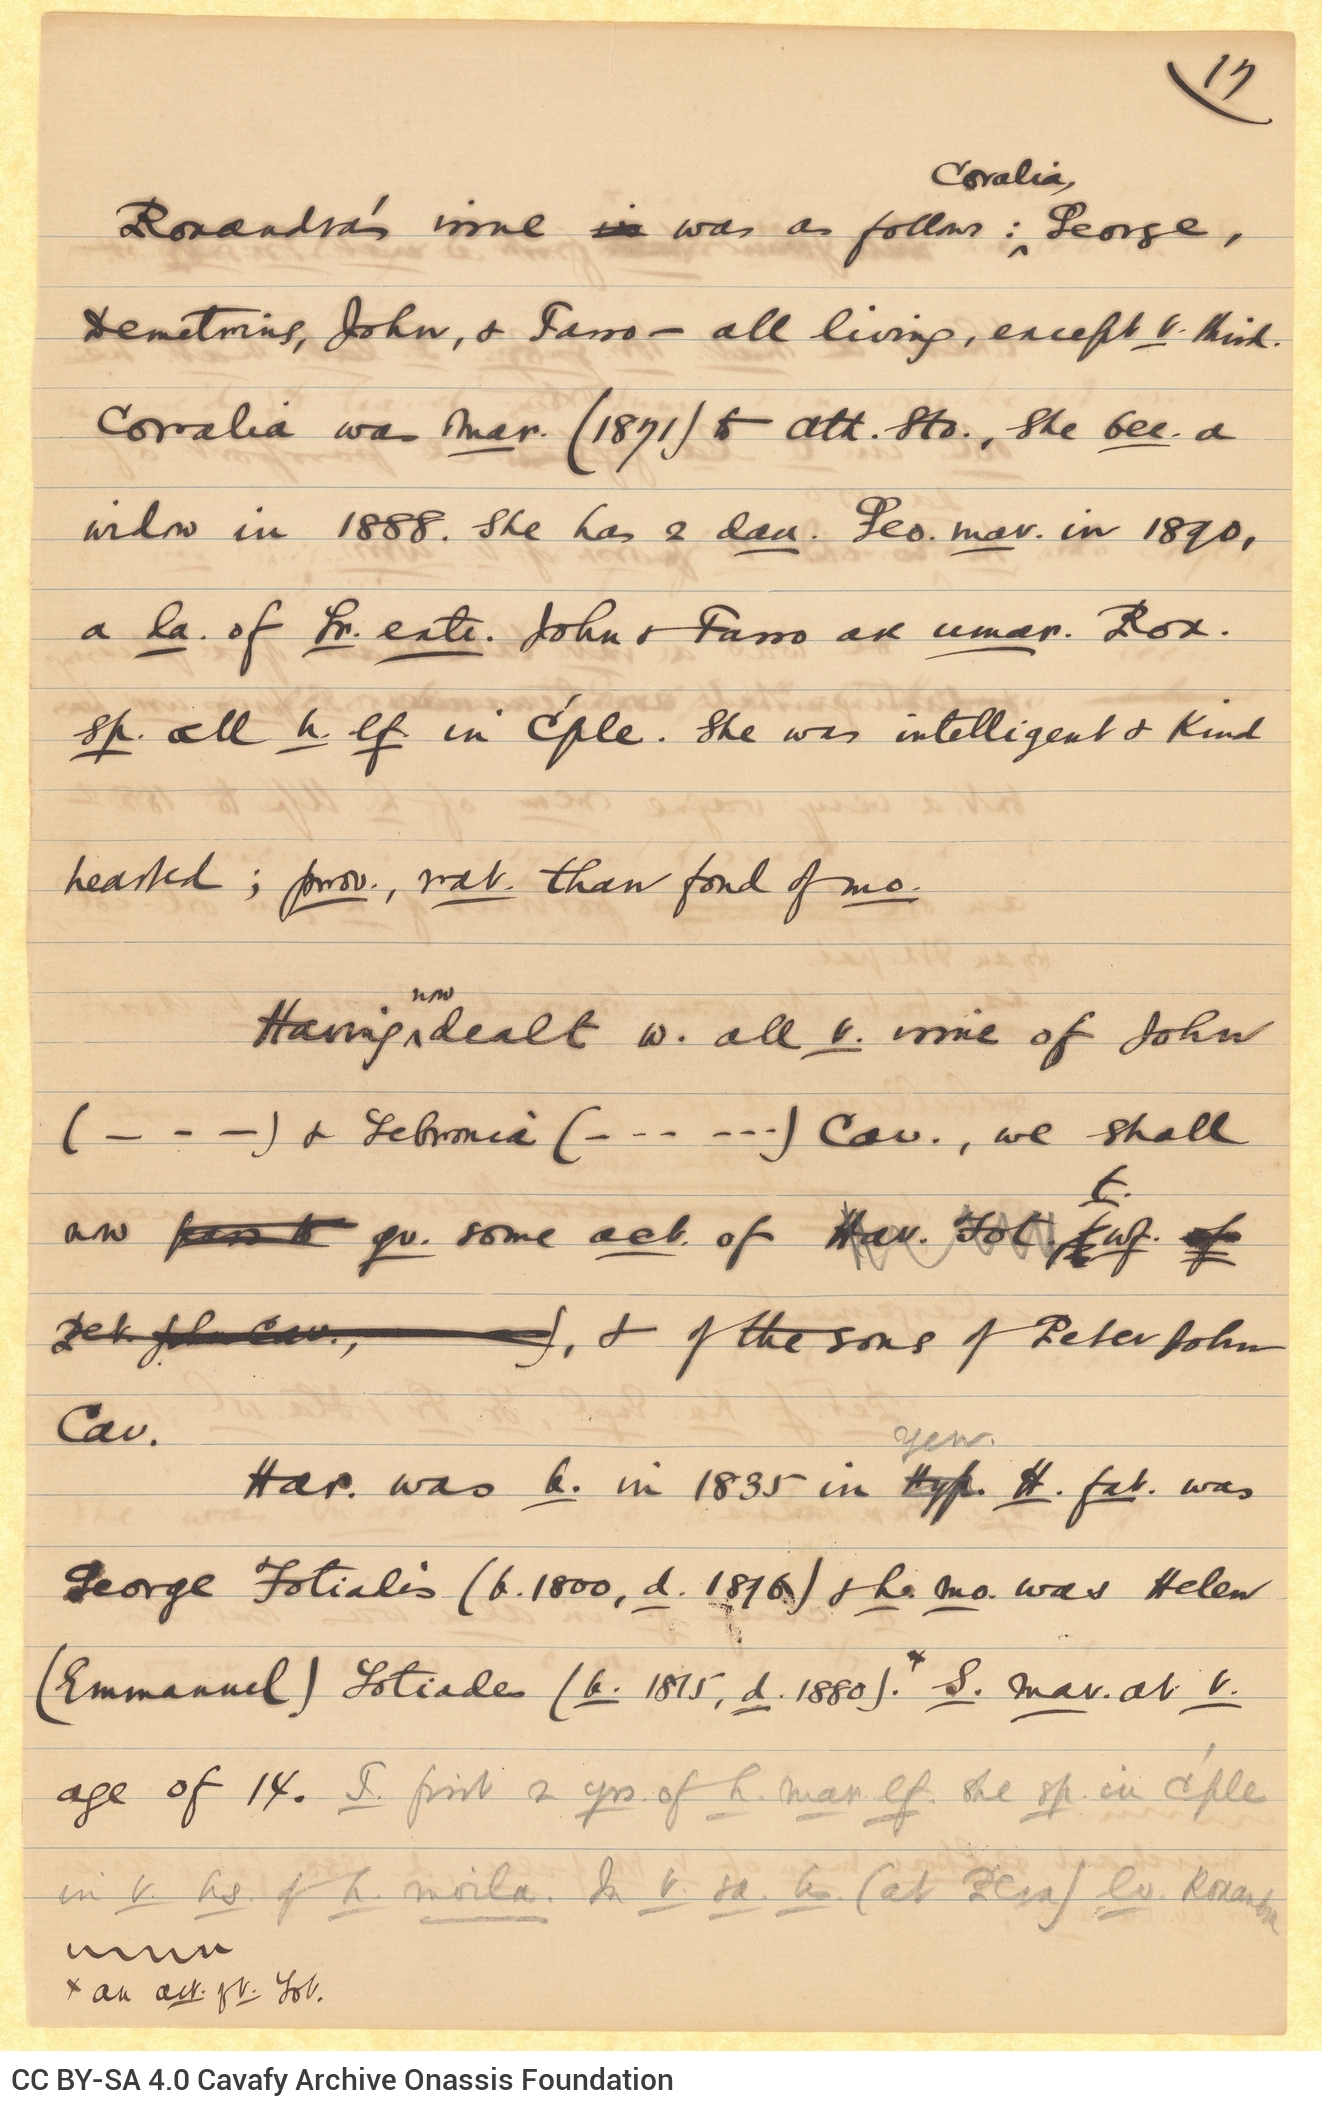 17
Coralia,
Roxandra's issue in was as follows : George,
Demetrius, John, & Tasso — all living, except t. third.
Corralia was mar. (1871) to Ath. Sto., she bec. a
widow in 1888. She has 2 dau. Geo. mar. in 1890,
a la. of Gr. extr. John & Tasso are unmar. Rox.
sp. all h. lf. in C'ple. She was intelligent & kind
hearted ; prov., rat. than fond of mo.
now
Having dealt w. all t. issue of John
( — - - — ) & Sebronia ( - - - - - - - ) Cav., we shall
t.
now pass to gv. some act. of Har. Fot. wf. of
Pet. Jh. Cav., ), & of the sons of Peter John
Cav.
yen.
Har. was b. in 1835 in Hyp. H. fat. was
George Fotiadis (b. 1800, d. 1896) & he. mo. was Helen
(Emmanuel) Fotiades (b. 1815, d. 1880).* S. mar. at t.
age of 14. T. first 2 yrs. of h. mar. lf. she sp. in C'ple
in t. hs. of h. moila. In t. sa. hs. (at Pera) lv. Roxandra
x an act. of t. Fot.
CC BY-SA 4.0 Cavafy Archive Onassis Foundation